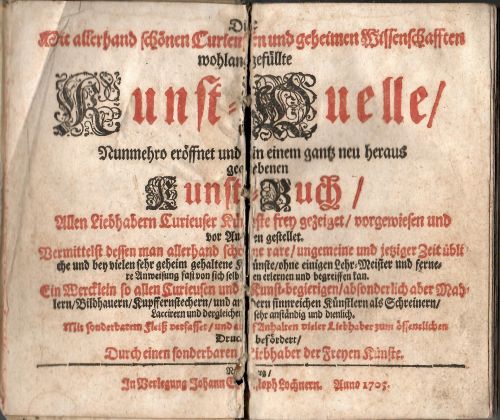 Die
Mit allerhand schönen Curieusen und geheimen Wissenschafften
wohlangefüllte
Kunst-Quelle/
Nunmehro eröffnet und in einem gantz neu heraus
gegebenen
Kunst-Buch/
Allen Liebhabern Curieuser Künste frey gezeiget/ vorgewiesen und
vor Augen gestellet.
Vermittelst dessen man allerhand schöne rare/ ungemeine und jetziger Zeit übli-
che und bey vielen sehr geheim gehaltene Künste/ ohne einigen Lehr-Meister und ferne-
re Anweisung fast von sich selbsten erlernen und begreiffen kan.
Ein Wercklein so allen Curieusen und Kunst-begierigen/ absonderlich aber Mah-
lern/ Bildhauern/ Kupfferstechern/ und andern sinnreichen Künstlern als Schreinern/
Laccirern und dergleichen sehr anständig und dienlich.
Mit sonderbarem Fleiß verfasset/ und auf Anhalten vieler Liebhaber zum öffentlichen
Druck befördert/
Durch einen sonderbaren Liebhaber der Freyen Künste.
In Verlegung Johann Christoph Lochnern. Anno 1705.